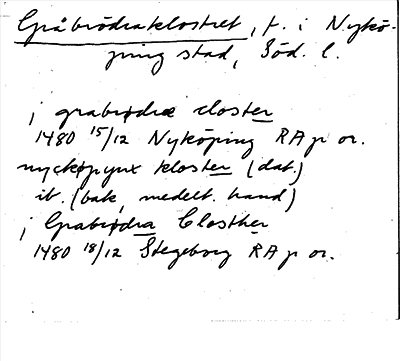 Gråbrödraklostret, t. i Nykö-
ping stad, Söd. l.
j grabrødræ closter
1480 15/12 Nyköping RA p or.
nyckøpynx kloster (dat.)
ib. (bak, medelt. hand)
j Grabrødra Closther
1480 18/12 Stegeborg RA p or.